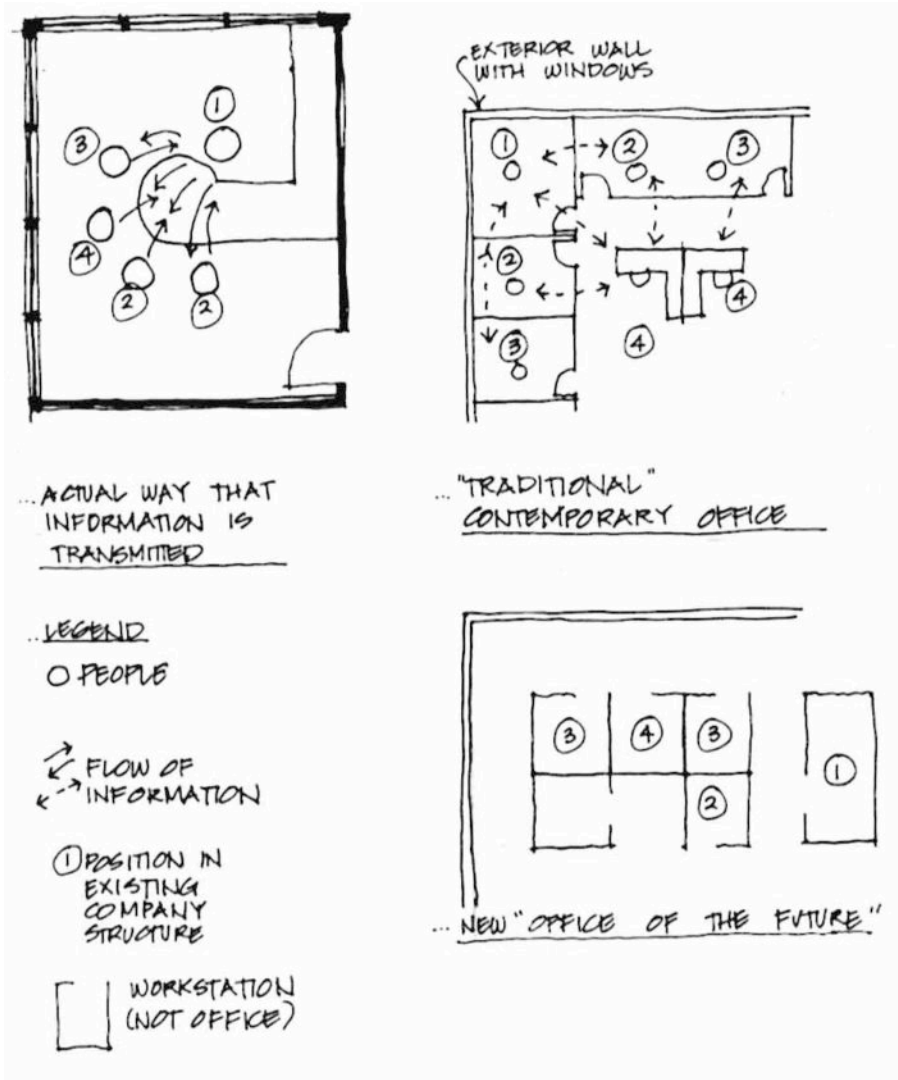 1
3
4
2
2
... ACTUAL WAY THAT
INFORMATION IS
TRANSMITTED
EXTERIOR WALL
WITH WINDOWS
1
2
3
2
3
4
4
... "TRADITIONAL"
CONTEMPORARY OFFICE
... LEGEND
PEOPLE
FLOW OF
INFORMATION
1 POSITION IN
EXISTING
COMPANY
STRUCTURE
WORKSTATION
(NOT OFFICE)
3
4
3
2
1
... NEW "OFFICE OF THE FUTURE"